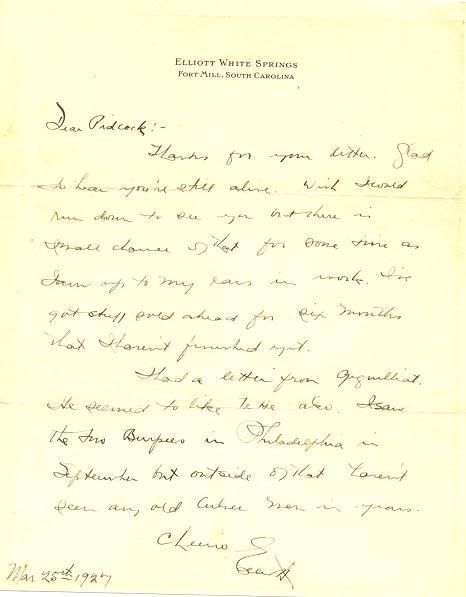 ELLIOTT WHITE SPRINGS
FORT MILL, SOUTH CAROLINA
Dear Pidcock:-
Thanks for your letter. Glad
to hear you're still alive. Wish I could
run down to see you but there is
small chance of that for some time as
I am up to my ears in work. I've
got stuff sold ahead for six months
that I haven't finished yet.
I had a letter from
He seemed to like to also. I saw
the two Burpees in Philadelphia in
September but outside of that haven't
seen any old Culver men in years.
Cheerio
Mar 25th 1927